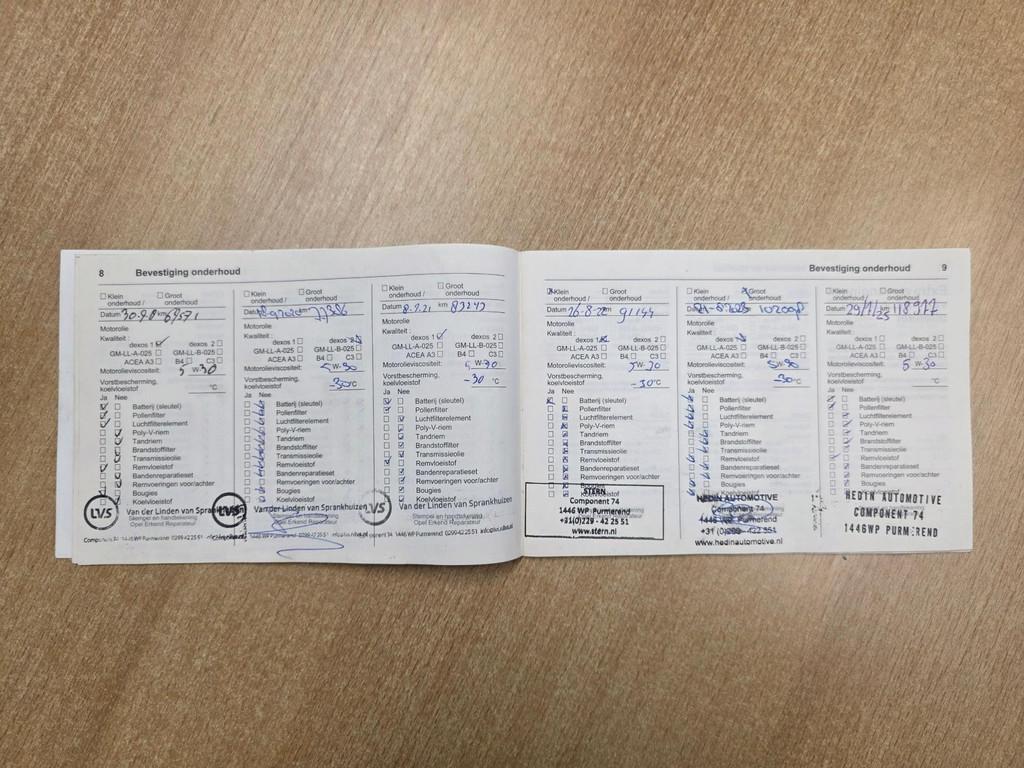 8 Bevestiging onderhoud
Klein onderhoud / Groot onderhoud
Datum 30-9- km
Motorolie
Kwaliteit :
dexos 1
GM-LL-A-025 GM-LL-B-025
ACEA A3 B4 C3
Motorolieviscositeit: 5 W-30
Vorstbescherming, koelvloeistof °C
Ja Nee
Batterij (sleutel)
Pollenfilter
Luchtfilterelement
Poly-V-riem
Tandriem
Brandstoffilter
Transmissieolie
Remvloeistof
Bandenreparatieset
Remvoeringen voor/achter
Bougies
Koelvloeistof
LVS Van der Linden van Sprankhuizen
Klein onderhoud / Groot onderhoud
Datum
Motorolie
Kwaliteit :
dexos 1 dexos 2
GM-LL-A-025 GM-LL-B-025
ACEA A3 B4 C3
Motorolieviscositeit: 5 W-30
Vorstbescherming, koelvloeistof -30°C
Ja Nee
Batterij (sleutel)
Pollenfilter
Luchtfilterelement
Poly-V-riem
Tandriem
Brandstoffilter
Transmissieolie
Remvloeistof
Bandenreparatieset
Remvoeringen voor/achter
Bougies
Koelvloeistof
LVS Van der Linden van Sprankhuizen
Stempel en handtekening
Opel Erkend Reparateur
Klein onderhoud / Groot onderhoud
Datum 8.9.21 km 83243
Motorolie
Kwaliteit :
dexos 1 dexos 2
GM-LL-A-025 GM-LL-B-025
ACEA A3 B4 C3
Motorolieviscositeit: 5 W-30
Vorstbescherming, koelvloeistof -30 °C
Ja Nee
Batterij (sleutel)
Pollenfilter
Luchtfilterelement
Poly-V-riem
Tandriem
Brandstoffilter
Transmissieolie
Remvloeistof
Bandenreparatieset
Remvoeringen voor/achter
Bougies
Koelvloeistof
LVS Van der Linden van Sprankhuizen
Stempel en handtekening
Opel Erkend Reparateur
Bevestiging onderhoud 9
Klein onderhoud / Groot onderhoud
Datum 26-8-22 91144
Motorolie
Kwaliteit :
dexos 1 dexos 2
GM-LL-A-025 GM-LL-B-025
ACEA A3 B4 C3
Motorolieviscositeit: 5W-30
Vorstbescherming, koelvloeistof -30°C
Ja Nee
Batterij (sleutel)
Pollenfilter
Luchtfilterelement
Poly-V-riem
Tandriem
Brandstoffilter
Transmissieolie
Remvloeistof
Bandenreparatieset
Remvoeringen voor/achter
Bougies
STERN
Component 74
1446 WP Purmerend
+31(0)299 - 42 25 51
www.stern.nl
Klein onderhoud / Groot onderhoud
Datum
Motorolie
Kwaliteit :
dexos 1 dexos 2
GM-LL-A-025 GM-LL-B-025
ACEA A3 B4 C3
Motorolieviscositeit: 5W-30
Vorstbescherming, koelvloeistof -30°C
Ja Nee
Batterij (sleutel)
Pollenfilter
Luchtfilterelement
Poly-V-riem
Tandriem
Brandstoffilter
Transmissieolie
Remvloeistof
Bandenreparatieset
Remvoeringen voor/achter
Bougies
HEDIN AUTOMOTIVE
Component 74
1446 WP Purmerend
www.hedinautomotive.nl
Klein onderhoud / Groot onderhoud
Datum
Motorolie
Kwaliteit :
dexos 1 dexos 2
GM-LL-A-025 GM-LL-B-025
ACEA A3 B4 C3
Motorolieviscositeit: 5 W-30
Vorstbescherming, koelvloeistof °C
Ja Nee
Batterij (sleutel)
Pollenfilter
Luchtfilterelement
Poly-V-riem
Tandriem
Brandstoffilter
Transmissieolie
Remvloeistof
Bandenreparatieset
Remvoeringen voor/achter
Bougies
HEDIN AUTOMOTIVE
COMPONENT 74
1446WP PURMEREND